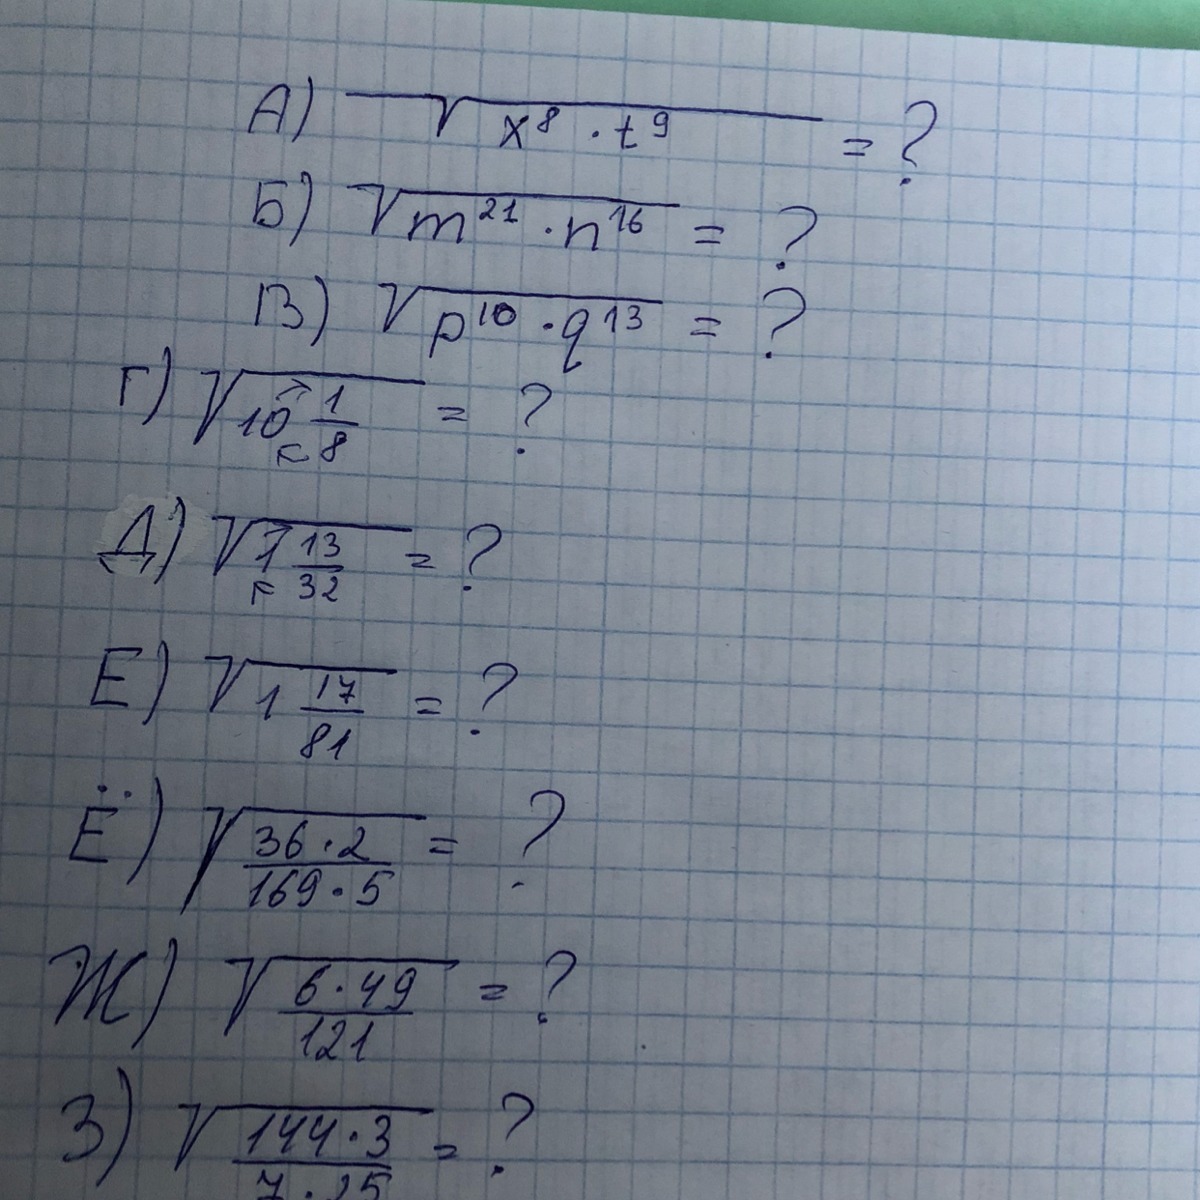 А) √(x⁸ · t⁹) = ?
Б) √(m²¹ · n¹⁶) = ?
В) √(p¹⁰ · q¹³) = ?
Г) √(10 1/8) = ?
Д) √(1 13/32) = ?
Е) √(1 17/81) = ?
Ё) √((36 · 2)/(169 · 5)) = ?
Ж) √((6 · 49)/121) = ?
З) √((144 · 3)/(7 · 25)) = ?